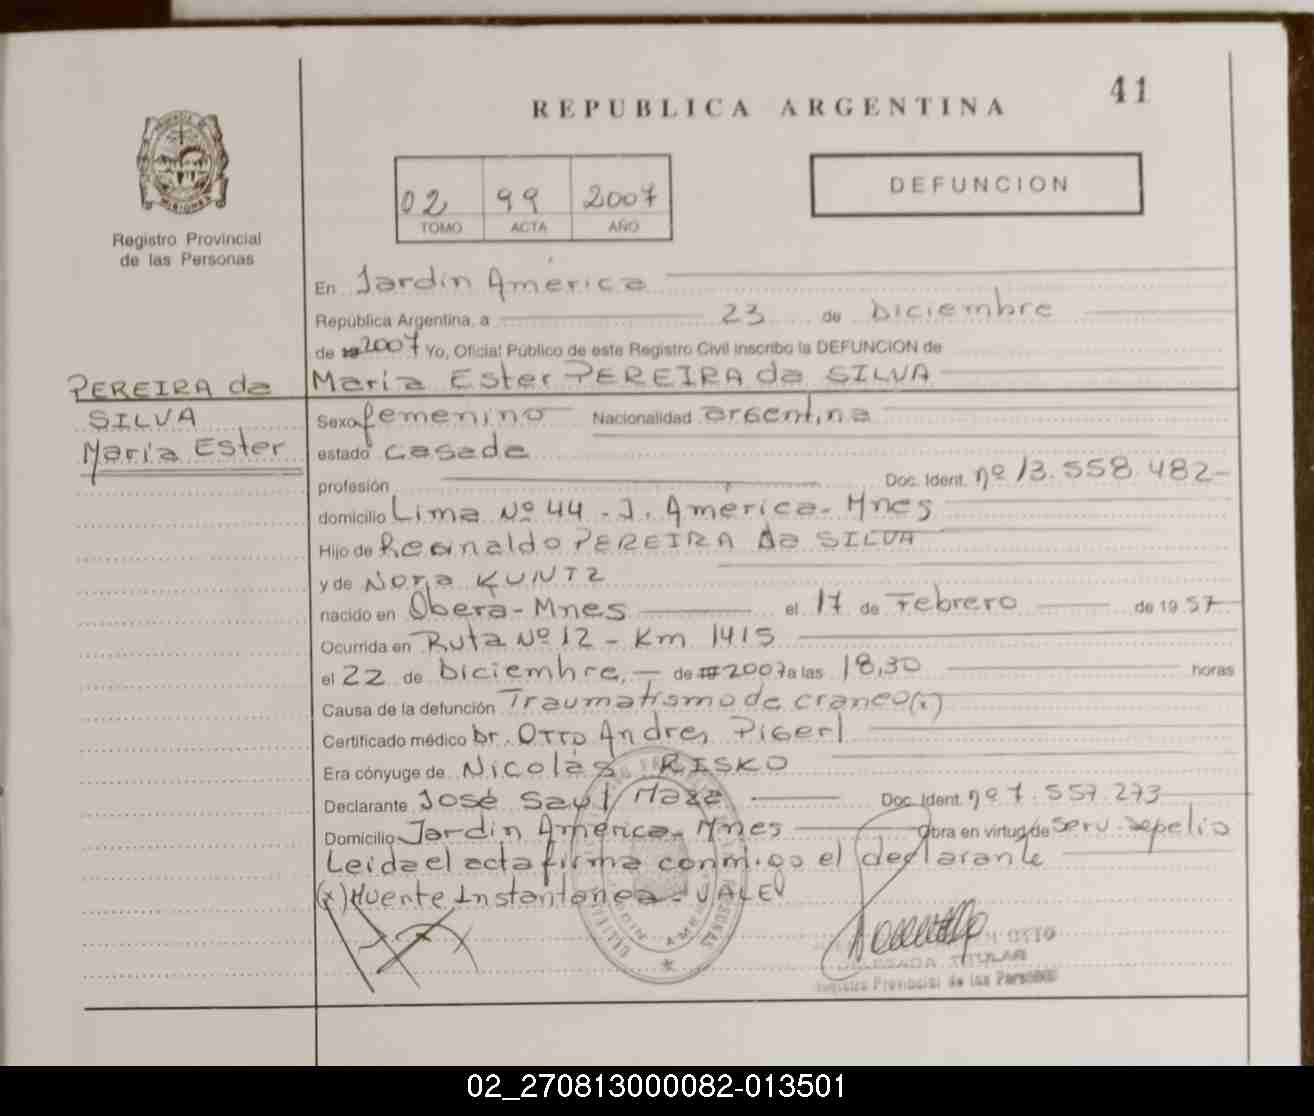 41
REPUBLICA ARGENTINA
02 99 2007
TOMO ACTA AÑO
DEFUNCION
Registro Provincial
de las Personas
En Jardín América
República Argentina, a 23 de Diciembre
de 19 2007 Yo, Oficial Público de este Registro Civil inscribo la DEFUNCION de
PEREIRA da
SILVA
María Ester
María Ester PEREIRA da SILVA
Sexo femenino Nacionalidad argentina
estado casada
profesión Doc. Ident. nº 13.558.482-
domicilio Lima Nº 44 - J. America - Mnes
Hijo de Reginaldo PEREIRA da SILVA
y de Nora KUNTZ
nacido en Oberá - Mnes el 17 de Febrero de 1957
Ocurrida en Ruta Nº 12 - Km 1415
el 22 de Diciembre, de 19 2007 a las 18,30 horas
Causa de la defunción Traumatismo de craneo (x)
Certificado médico Dr. Otto Andres
Era cónyuge de Nicolás RISKO
Declarante José Saul Maza Doc. Ident. nº 7.557.273
Domicilio Jardín América - Mnes Obra en virtud de Serv. Sepelio
Leida el acta firma conmigo el declarante
(x) Muerte Instantánea - VALE
DELEGADA TITULAR
Registro Provincial de las Personas
02_270813000082-013501